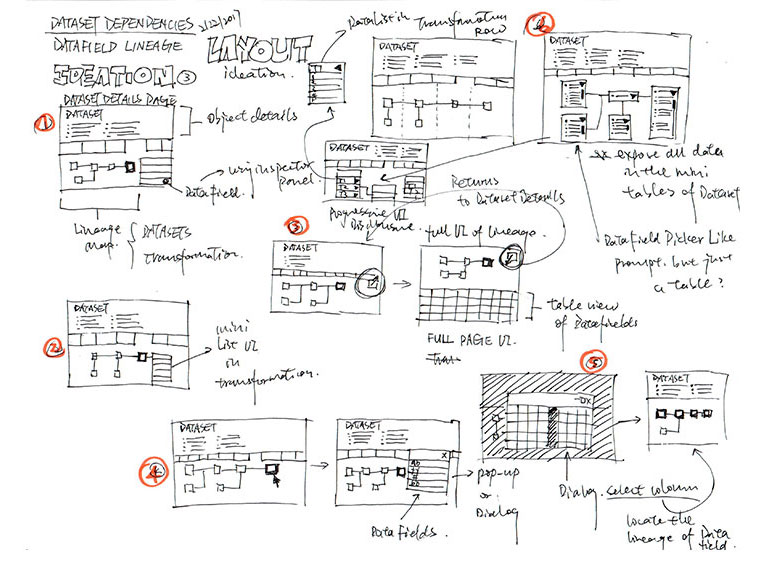 DATASET DEPENDENCIES 2/12/2017
DATAFIELD LINEAGE
IDEATION 3
LAYOUT
ideation.
DATASET DETAILS PAGE
1
DATASET
Object details
Data field.
using inspector
panel.
Lineage
map.
DATASETS
transformation.
Data List in Transformation
Row
DATASET
DATASET
Progressive UI
Disclosure.
DATASET
** expose all data
in the mini
tables of Dataset
Datafield Picker Like
prompt. but just
a table?
2
DATASET
mini
List UI
in
transformation.
3
DATASET
Returns
to Dataset Details
full UI of Lineage.
DATASET
table view
of Datafields
FULL PAGE UI.
4
DATASET
DATASET
X
Data fields
pop-up
or
Dialog
5
Dialog. select column
DATASET
locate the
lineage of Data
field.